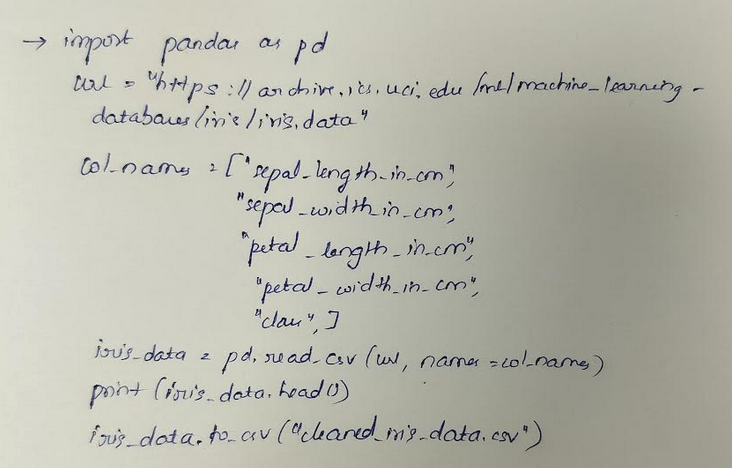 → import pandas as pd
url = "https://archive.ics.uci.edu/ml/machine_learning-
databases/iris/iris.data"
col_names = ["sepal_length_in_cm",
"sepal_width_in_cm",
"petal_length_in_cm",
"petal_width_in_cm",
"class",]
iris_data = pd.read_csv(url, names=col_names)
print(iris_data.head())
iris_data.to_csv("cleaned_iris_data.csv")